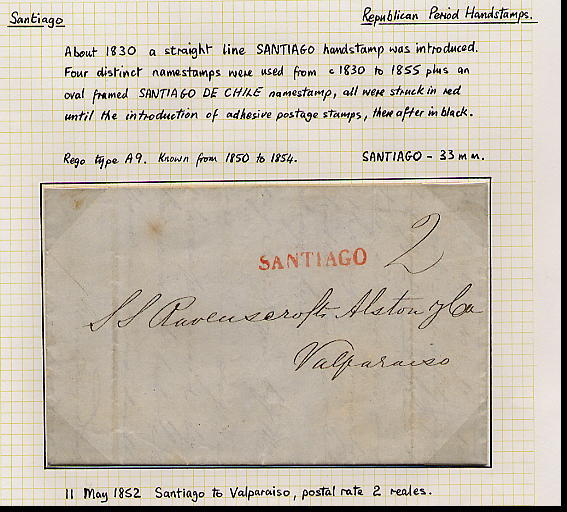 Santiago
Republican Period Handstamps.
About 1830 a straight line SANTIAGO handstamp was introduced.
Four distinct namestamps were used from c1830 to 1855 plus an
oval framed SANTIAGO DE CHILE namestamp, all were struck in red
until the introduction of adhesive postage stamps, thereafter in black.
Rego type A9. Known from 1850 to 1854.
SANTIAGO - 33 mm.
SANTIAGO 2
SS Ravenscrofts Alston y Ca
Valparaiso
11 May 1852 Santiago to Valparaiso, postal rate 2 reales.